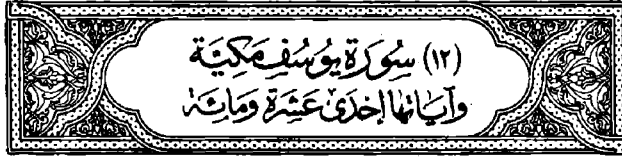 (١٢) سُورَة يُوسُف مَكِيَّة
وَآيَاتُهَا إِحْدَى عَشْرَة وَمَائَة